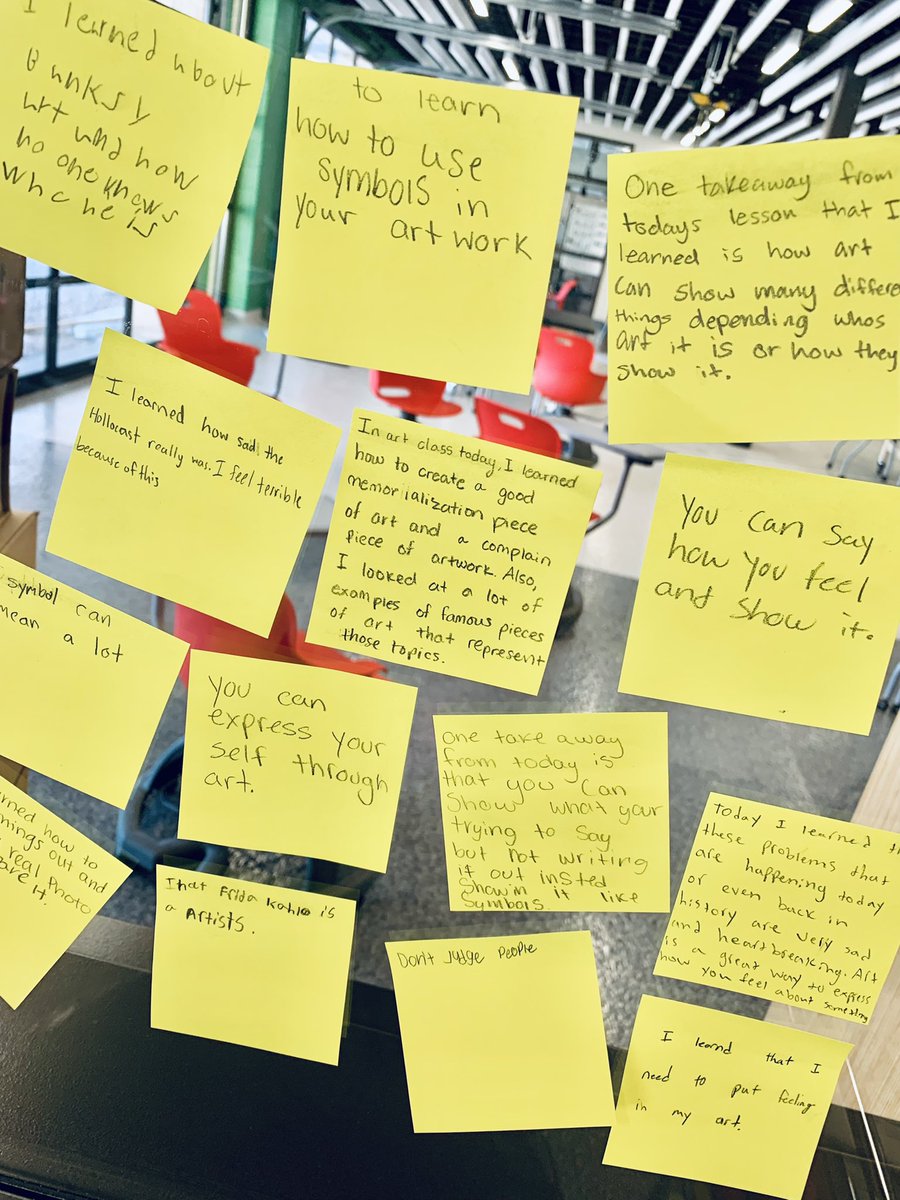 I learned about
Banksy
art and how
no one knows
who he is
to learn
how to use
symbols in
your art work
One takeaway from
todays lesson that I
learned is how art
can show many differe
things depending whos
art it is or how they
show it.
I learned how sad the
Hollocast really was. I feel terrible
because of this
In art class today, I learned
how to create a good
memorialization piece
of art and a complain
piece of artwork. Also,
I looked at a lot of
examples of famous pieces
of art that represent
those topics.
You can say
how you feel
and show it.
symbol can
mean a lot
You can
express your
self through
art.
one take away
from today is
that you can
show what your
trying to say
but not writing
it out insted
showin it like
symbols.
Today I learned th
these problems that
are happening today
or even back in
history are very sad
and heartbreaking. Art
is a great way to express
how you feel about something
how to
out and
real Photo
it.
That Frida Kahlo is
a Artists.
Don't Judge People
I learnd that I
need to put feeling
in my art.